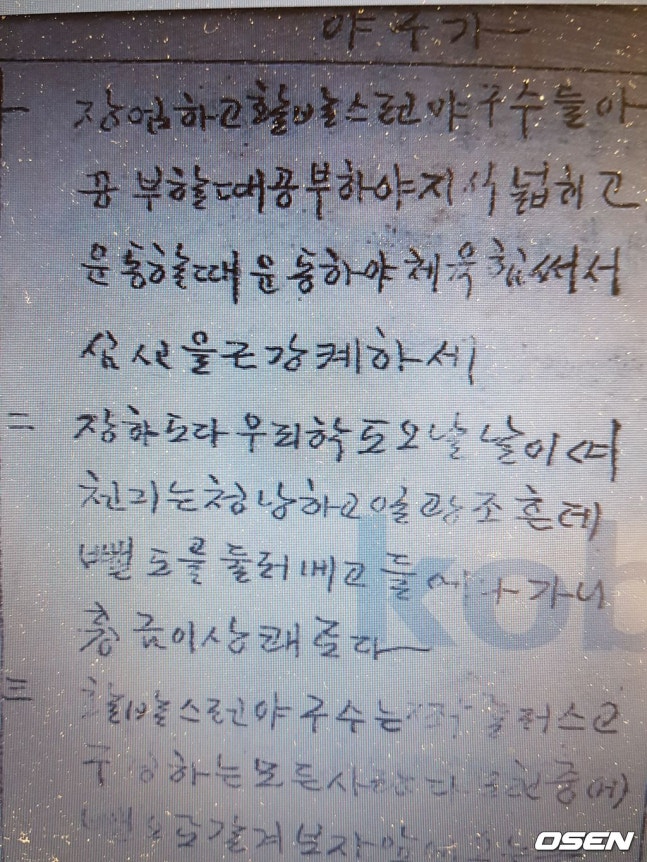 야 구 가
一 장엄하고 활발스런 야구수들아
공부할때 공부하야 지식 넓히고
운동할때 운동하야 체육 힘써서
심신을 근강케하세
二 장하도다 우리 학도 오날날이여
천긔는 청낭하고 일광 조흔데
뺄도를 둘러메고 들에 나가니
흉금이 상쾌로다
三 활발스런 야구수는 둘러스고
구경하는 모든 사람 중에
보자
kob
OSEN